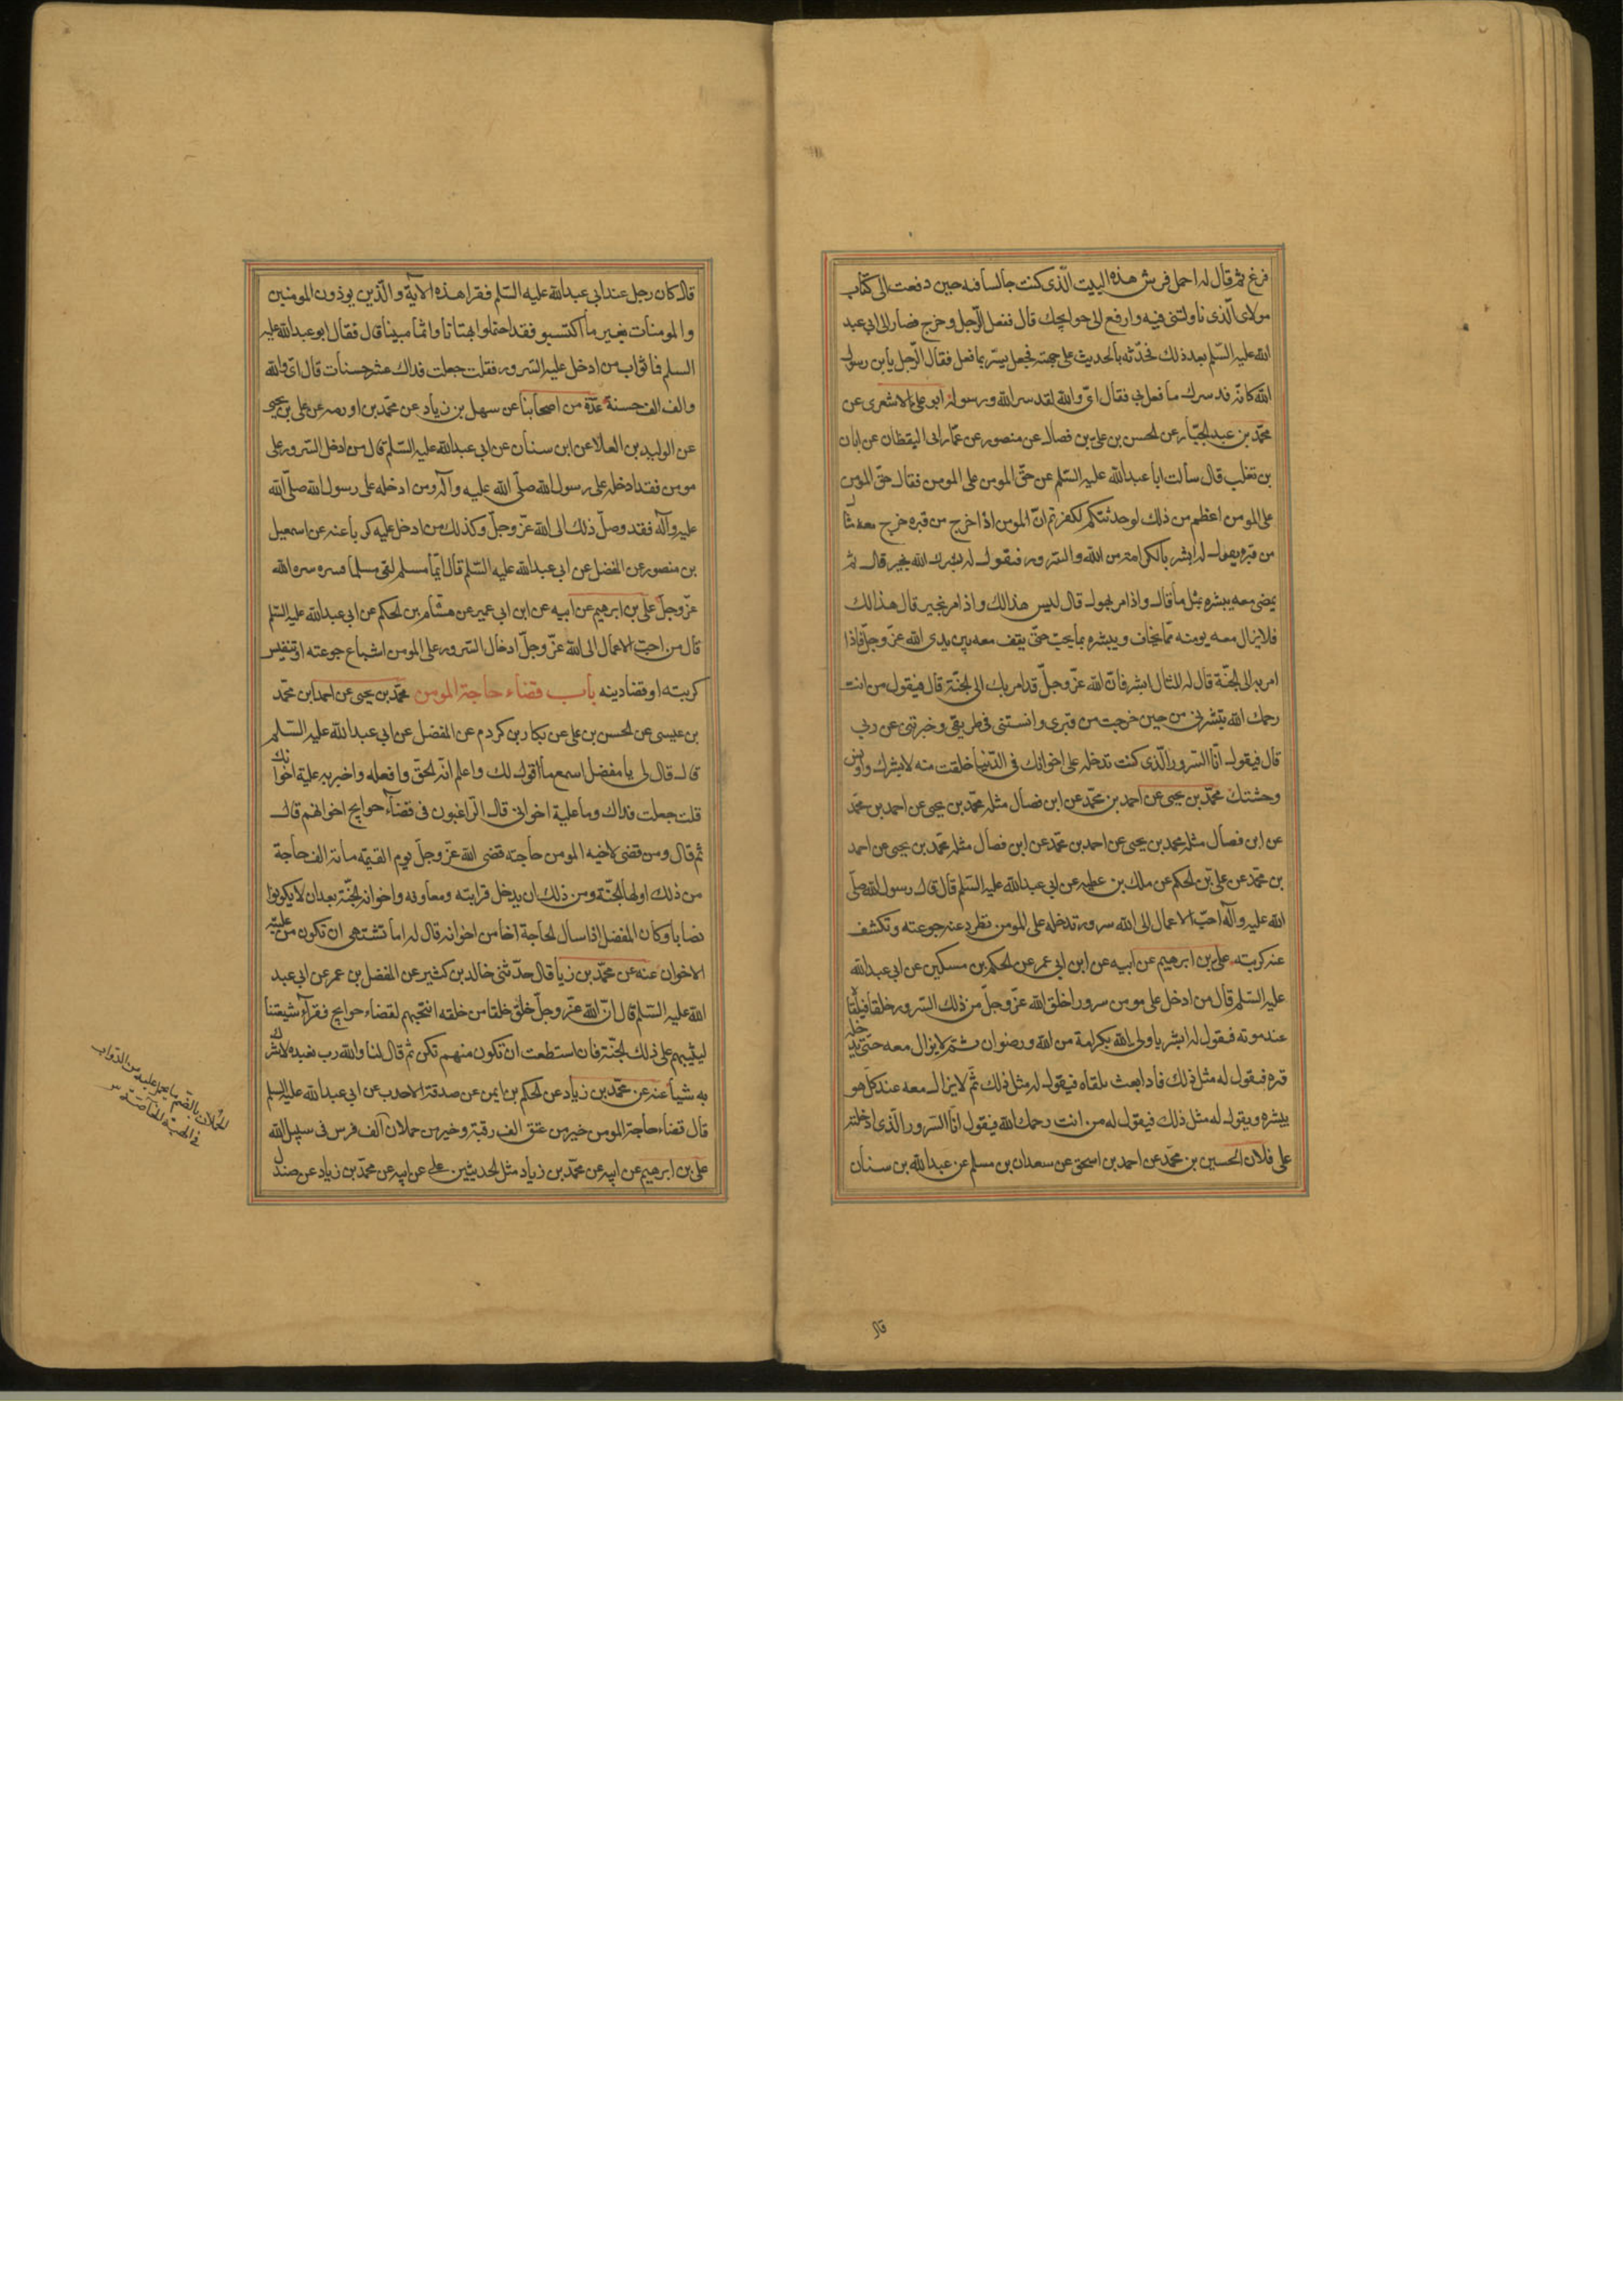 فرغ ثم قال له احمل فرش هذه البيت الّذى كنت جالسا فيه حين دفعت الى كتاب
مولاى الّذى ناولتنى فيه وارفع الى حوايجك قال ففعل الرّجل وخرج فصار الى ابى عبد
الله عليه السّلم بعد ذلك فحدّثه بالحديث على جهته فجعل يسرّ بما فعل فقال الرّجل يا بن رسول
الله كانّه قد سرك ما فعل بى فقال اى والله لقد سر الله ورسوله ابو على الاشعرى عن
محمّد بن عبد الجبّار عن الحسن بن على بن فضال عن منصور عن عمّار ابى اليقظان عن ابان
بن تغلب قال سالت ابا عبد الله عليه السّلم عن حقّ المومن على المومن فقال حقّ المومن
على المومن اعظم من ذلك لو حدثتكم لكفرتم انّ المومن اذا خرج من قبره خرج معه مثال
من قبره يقول له ابشر بالكرامة من الله والسّرور فيقول له بشرك الله بخير قال ثم
يمضى معه يبشره بمثل ما قال واذا مر بهول قال ليس هذا لك واذا مر بخير قال هذا لك
فلا يزال معه يومنه ممّا يخاف ويبشره بما يحب حتّى يقف معه بين يدى الله عزّ وجلّ فاذا
امر به الى الجنّة قال له المثال ابشر فانّ الله عزّ وجلّ قد امر بك الى الجنّة قال فيقول من انت
رحمك الله بتشرنى من حين خرجت من قبرى وانستنى فى طريقى وخبرتنى عن ربى
قال فيقول انّا السّرور الّذى كنت تدخله على اخوانك فى الدّنيا خلقت منه لابشرك واونس
وحشتك محمّد بن يحيى عن احمد بن محمّد عن ابن فضال مثله محمّد بن يحيى عن احمد بن محمّد
عن ابن فضال مثله محمد بن يحيى عن احمد بن محمّد عن ابن فضال مثله محمّد بن يحيى عن احمد
بن محمّد عن على بن الحكم عن ملك بن عطيه عن ابى عبد الله عليه السّلم قال قال رسول الله صلّى
الله عليه وآله احبّ الاعمال الى الله سرور تدخله على المومن تطرد عنه جوعته وتكشف
عنه كربته على بن ابرهيم عن ابيه عن ابن ابى عمر عن الحكم بن مسكين عن ابى عبد الله
عليه السّلم قال من ادخل على مومن سرورا خلق الله عزّ وجلّ من ذلك السّرور خلقا فيلقاه
عند موته فيقول له ابشر يا ولى الله بكرامة من الله ورضوان ثم لا يزال معه حتّى يدخله
قبره فيقول له مثل ذلك فاذا بعث تلقاه فيقول له مثل ذلك ثم لا يزال معه عند كلّ هو
يبشره ويقول له مثل ذلك فيقول له من انت رحمك الله فيقول انّا السّرور الّذى ادخلته
على فلان الحسين بن محمّد عن احمد بن اسحق عن سعدان بن مسلم عن عبد الله بن سنان
قال
قال كان رجل عند ابى عبد الله عليه السّلم فقرا هذه الآية والّذين يوذون المومنين
والمومنات بغير ما اكتسبو فقد احتملوا بهتانا واثما مبينا قال فقال ابو عبد الله عليه
السلم فما ثواب من ادخل عليه السّرور فقلت جعلت فداك عشر حسنات قال اى والله
والف الف حسنة عدّة من اصحابنا عن سهل بن زياد عن محمّد بن اورمه عن على بن يحيى
عن الوليد بن العلا عن ابن سنان عن ابى عبد الله عليه السّلم قال من ادخل السّرور على
مومن فقد ادخله على رسول الله صلّى الله عليه وآله ومن ادخله على رسول الله صلّى الله
عليه وآله فقد وصل ذلك الى الله عزّ وجلّ وكذلك من ادخل عليه كربا عنه عن اسمعيل
بن منصور عن المفضل عن ابى عبد الله عليه السّلم قال ايّما مسلم لقى مسلما فسره سره الله
عزّ وجلّ على بن ابرهيم عن ابيه عن ابن ابى عمير عن هشام بن الحكم عن ابى عبد الله عليه السّلم
قال من احبّ الاعمال الى الله عزّ وجلّ ادخال السّرور على المومن اشباع جوعته او تنفيس
كربته او قضا دينه باب قضاء حاجة المومن محمّد بن يحيى عن احمد ابن محمّد
بن عيسى عن الحسن بن على عن بكار بن كردم عن المفضل عن ابى عبد الله عليه السّلم
قال قال لى يا مفضل اسمع ما اقول لك واعلم انّه الحقّ وافعله واخبر به علية اخوانك
قلت جعلت فداك وما علية اخوانى قال الرّاغبون فى قضاء حوايج اخوانهم قال
ثم قال ومن قضى لاخيه المومن حاجة قضى الله عزّ وجلّ يوم القيمه مائة الف حاجة
من ذلك اولها الجنّة ومن ذلك ان يدخل قرابته ومعارفه واخوانه الجنّة بعد ان لا يكونوا
نصابا وكان المفضل اذا سال الحاجة اخا من اخوانه قال له اما تشتهى ان تكون من علية
الاخوان عنه عن محمّد بن زيا قال حدّثنى خالد بن كثير عن المفضل بن عمر عن ابى عبد
الله عليه السّلم قال انّ الله عزّ وجلّ خلق خلقا من خلقه انتجبهم لقضاء حوايج فقراء شيعتنا
ليثيبهم على ذلك الجنّة فان استطعت ان تكون منهم فكن ثم قال لنا والله رب نعبده لا نشرك
به شيأ عنه عن محمّد بن زياد عن الحكم بن ايمن عن صدقة الاحدب عن ابى عبد الله عليه السلم
قال قضاء حاجة المومن خير من عتق الف رقبة وخير من حملان الف فرس فى سبيل الله
على بن ابرهيم عن ابيه عن محمّد بن زياد مثل الحديثين على عن ابيه عن محمّد بن زياد عن صندل
الحُملان بالضّم ما يحمل عليه من الدّواب
فى الهبة خاصّة